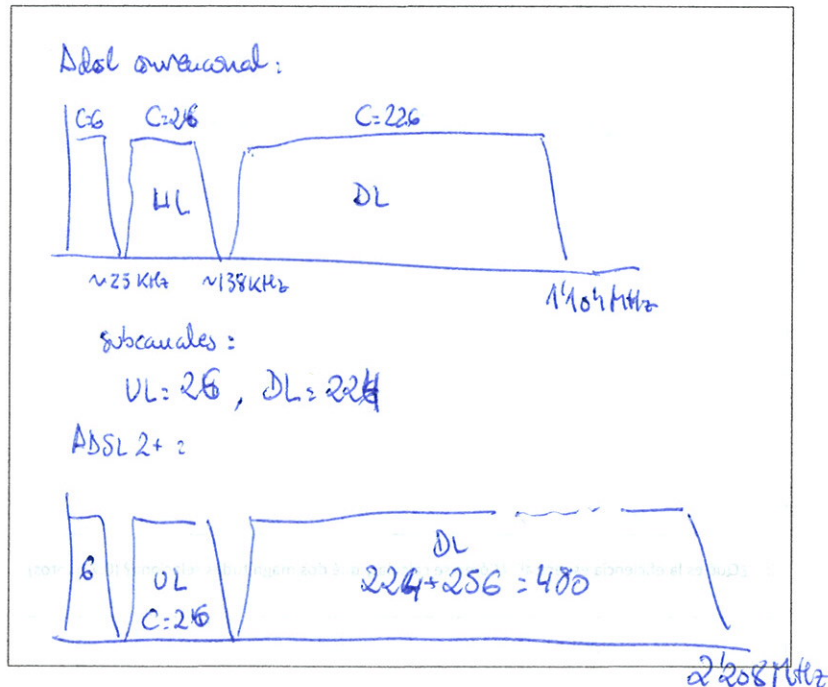 Adsl convencional:
C=6 C=26 C=226
UL DL
~25 KHz ~138KHz 1'104 MHz
subcanales:
UL=26, DL=224
ADSL 2+:
DL
6 UL 224+256=480
C=26
2'208 MHz